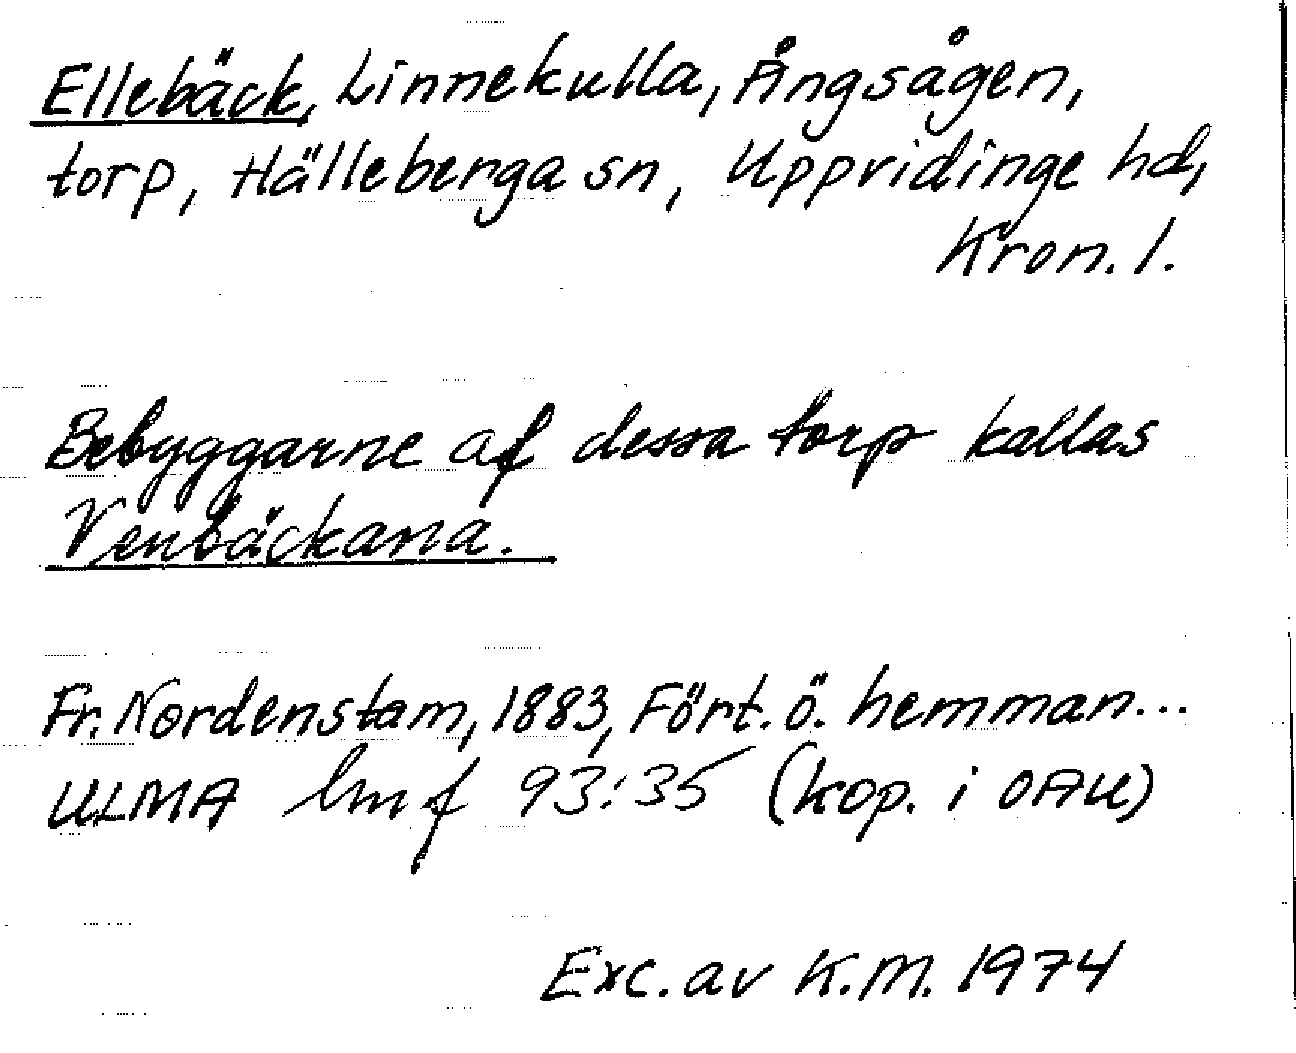 Ellebäck, Linnekulla, Ångsågen,
torp, Hälleberga sn, Uppvidinge hd,
Kron. l.
Bebyggarne af dessa torp kallas
Venbäckana.
Fr. Nordenstam, 1883, Fört. ö. hemman...
ULMA lmf 93:35 (kop. i OAU)
Exc. av K.M. 1974